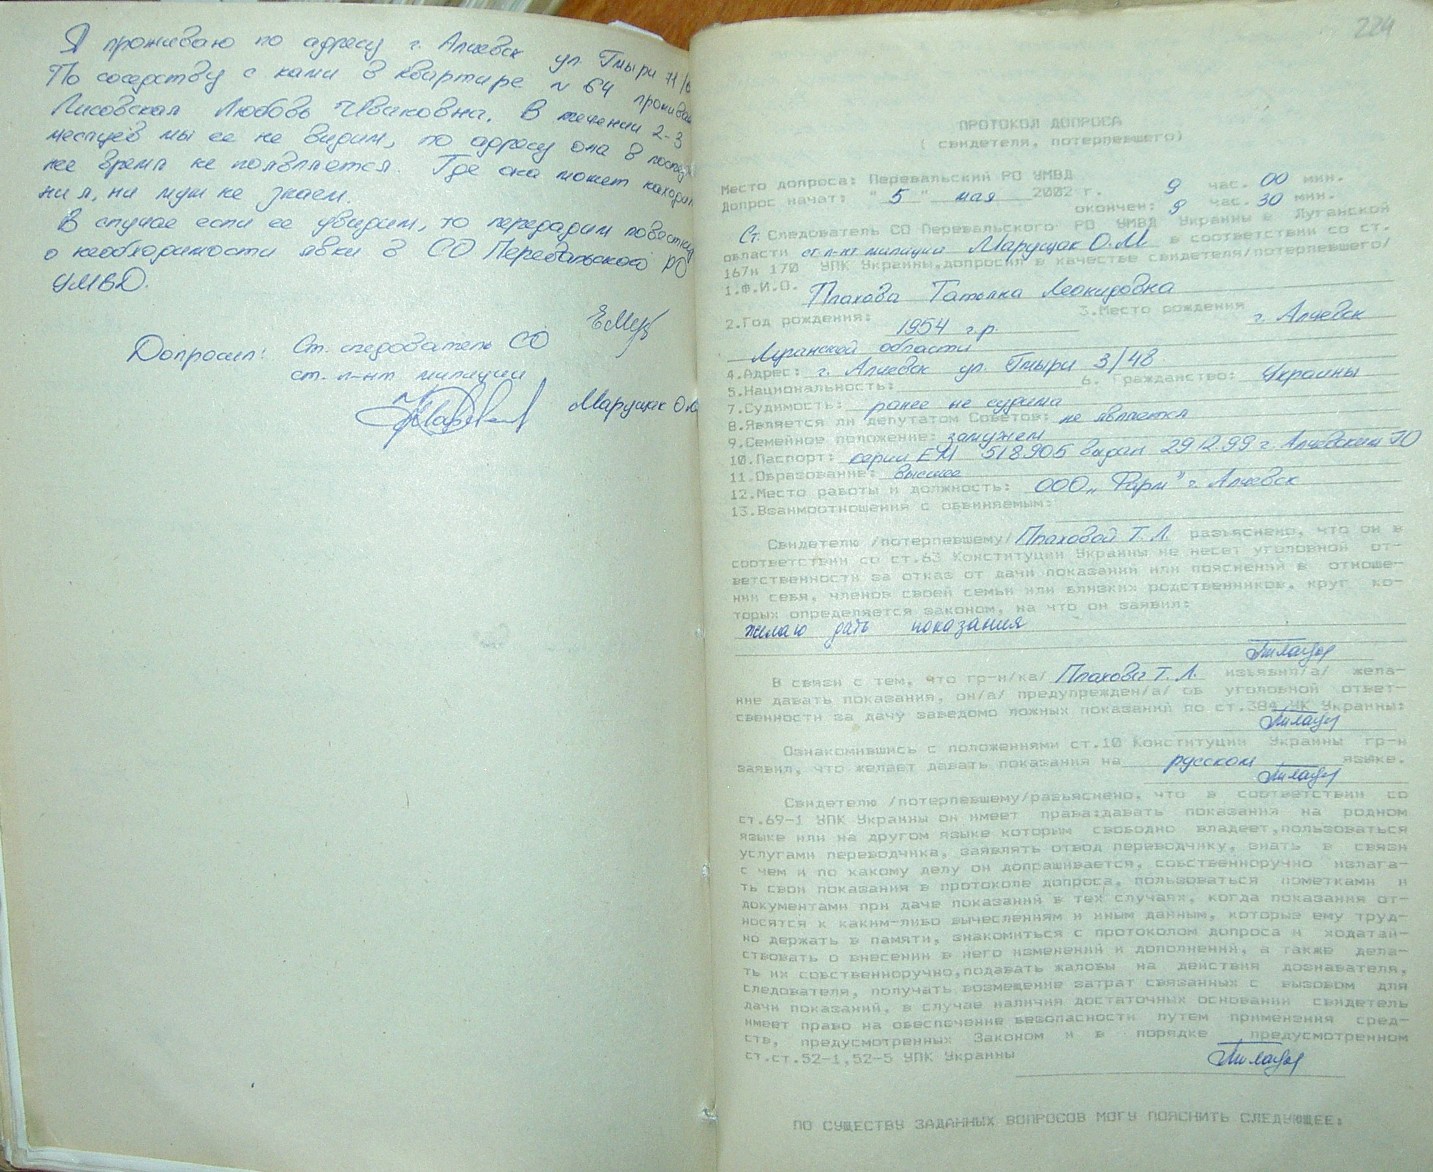 Я проживаю по адресу г. Алчевск ул Гмыри 71/6
По соседству с нами в квартире №64 прожива
Лисовская Любовь Ивановна. В течении 2-3
месяцев мы ее не видим, по адресу она в послед
нее время не появляется. Где она может находит
ни я, ни муж не знаем.
В случае если ее увидим, то передадим повестку
о необходимости явки в СО Перевальского РО
УМВД.
Допросил: Ст. следователь СО
ст. л-нт милиции
Марущак О.М
224
ПРОТОКОЛ ДОПРОСА
( свидетеля, потерпевшего)
Место допроса: Перевальский РО УМВД
Допрос начат: "5" мая 2002 г. 9 час. 00 мин.
окончен: 9 час. 30 мин.
Ст. Следователь СО Перевальского РО УМВД Украины в Луганской
области ст л-нт милиции Марущак О.М в соответствии со ст.
167и 170 УПК Украины,допросил в качестве свидетеля/потерпевшего/
1.Ф.И.О. Плахова Татьяна Леонидовна
2.Год рождения: 1954 г.р. 3.Место рождения г. Алчевск
Луганской области
4.Адрес: г. Алчевск ул. Гмыри 3/48
5.Национальность: 6. Гражданство: Украины
7.Судимость: ранее не судима
8.Является ли депутатом Советов: не является
9.Семейное положение: замужем
10.Паспорт: серии ЕМ 518905 выдан 29.12.99 г Алчевским ГО
11.Образование: высшее
12.Место работы и должность: ООО "Фарм" г. Алчевск
13.Взаимоотношения с обвиняемым:
Свидетелю /потерпевшему/ Плаховой Т.Л. разъяснено, что он в
соответствии со ст.63 Конституции Украины не несет уголовной от-
ветственности за отказ от дачи показаний или пояснений в отноше-
нии себя, членов своей семьи или близких родственников, круг ко-
торых определяется законом, на что он заявил:
желаю дать показания
В связи с тем, что гр-н/ка/ Плахова Т.Л. изъявил/а/ жела-
ние давать показания, он/а/ предупрежден/а/ об уголовной ответ-
свенности за дачу заведомо ложных показаний по ст.384 УК Украины:
Ознакомившись с положениями ст.10 Конституции Украины гр-н
заявил, что желает давать показания на русском языке.
Свидетелю /потерпевшему/разъяснено, что в соответствии со
ст.69-1 УПК Украины он имеет права:давать показания на родном
языке или на другом языке которым свободно владеет,пользоваться
услугами переводчика, заявлять отвод переводчику, знать в связи
с чем и по какому делу он допрашивается, собственноручно излага-
ть свои показания в протоколе допроса, пользоваться пометками и
документами при даче показаний в тех случаях, когда показания от-
носятся к каким-либо вычеслениям и иным данным, которые ему труд-
но держать в памяти, знакомиться с протоколом допроса и ходатай-
ствовать о внесении в него изменений и дополнений, а также дела-
ть их собственноручно,подавать жалобы на действия дознавателя,
следователя, получать возмещение затрат связанных с вызовом для
дачи показаний, в случае наличия достаточных оснований свидетель
имеет право на обеспечение безопасности путем применения сред-
ств, предусмотренных Законом и в порядке предусмотренном
ст.ст.52-1,52-5 УПК Украины
ПО СУЩЕСТВУ ЗАДАННЫХ ВОПРОСОВ МОГУ ПОЯСНИТЬ СЛЕДУЮЩЕЕ: